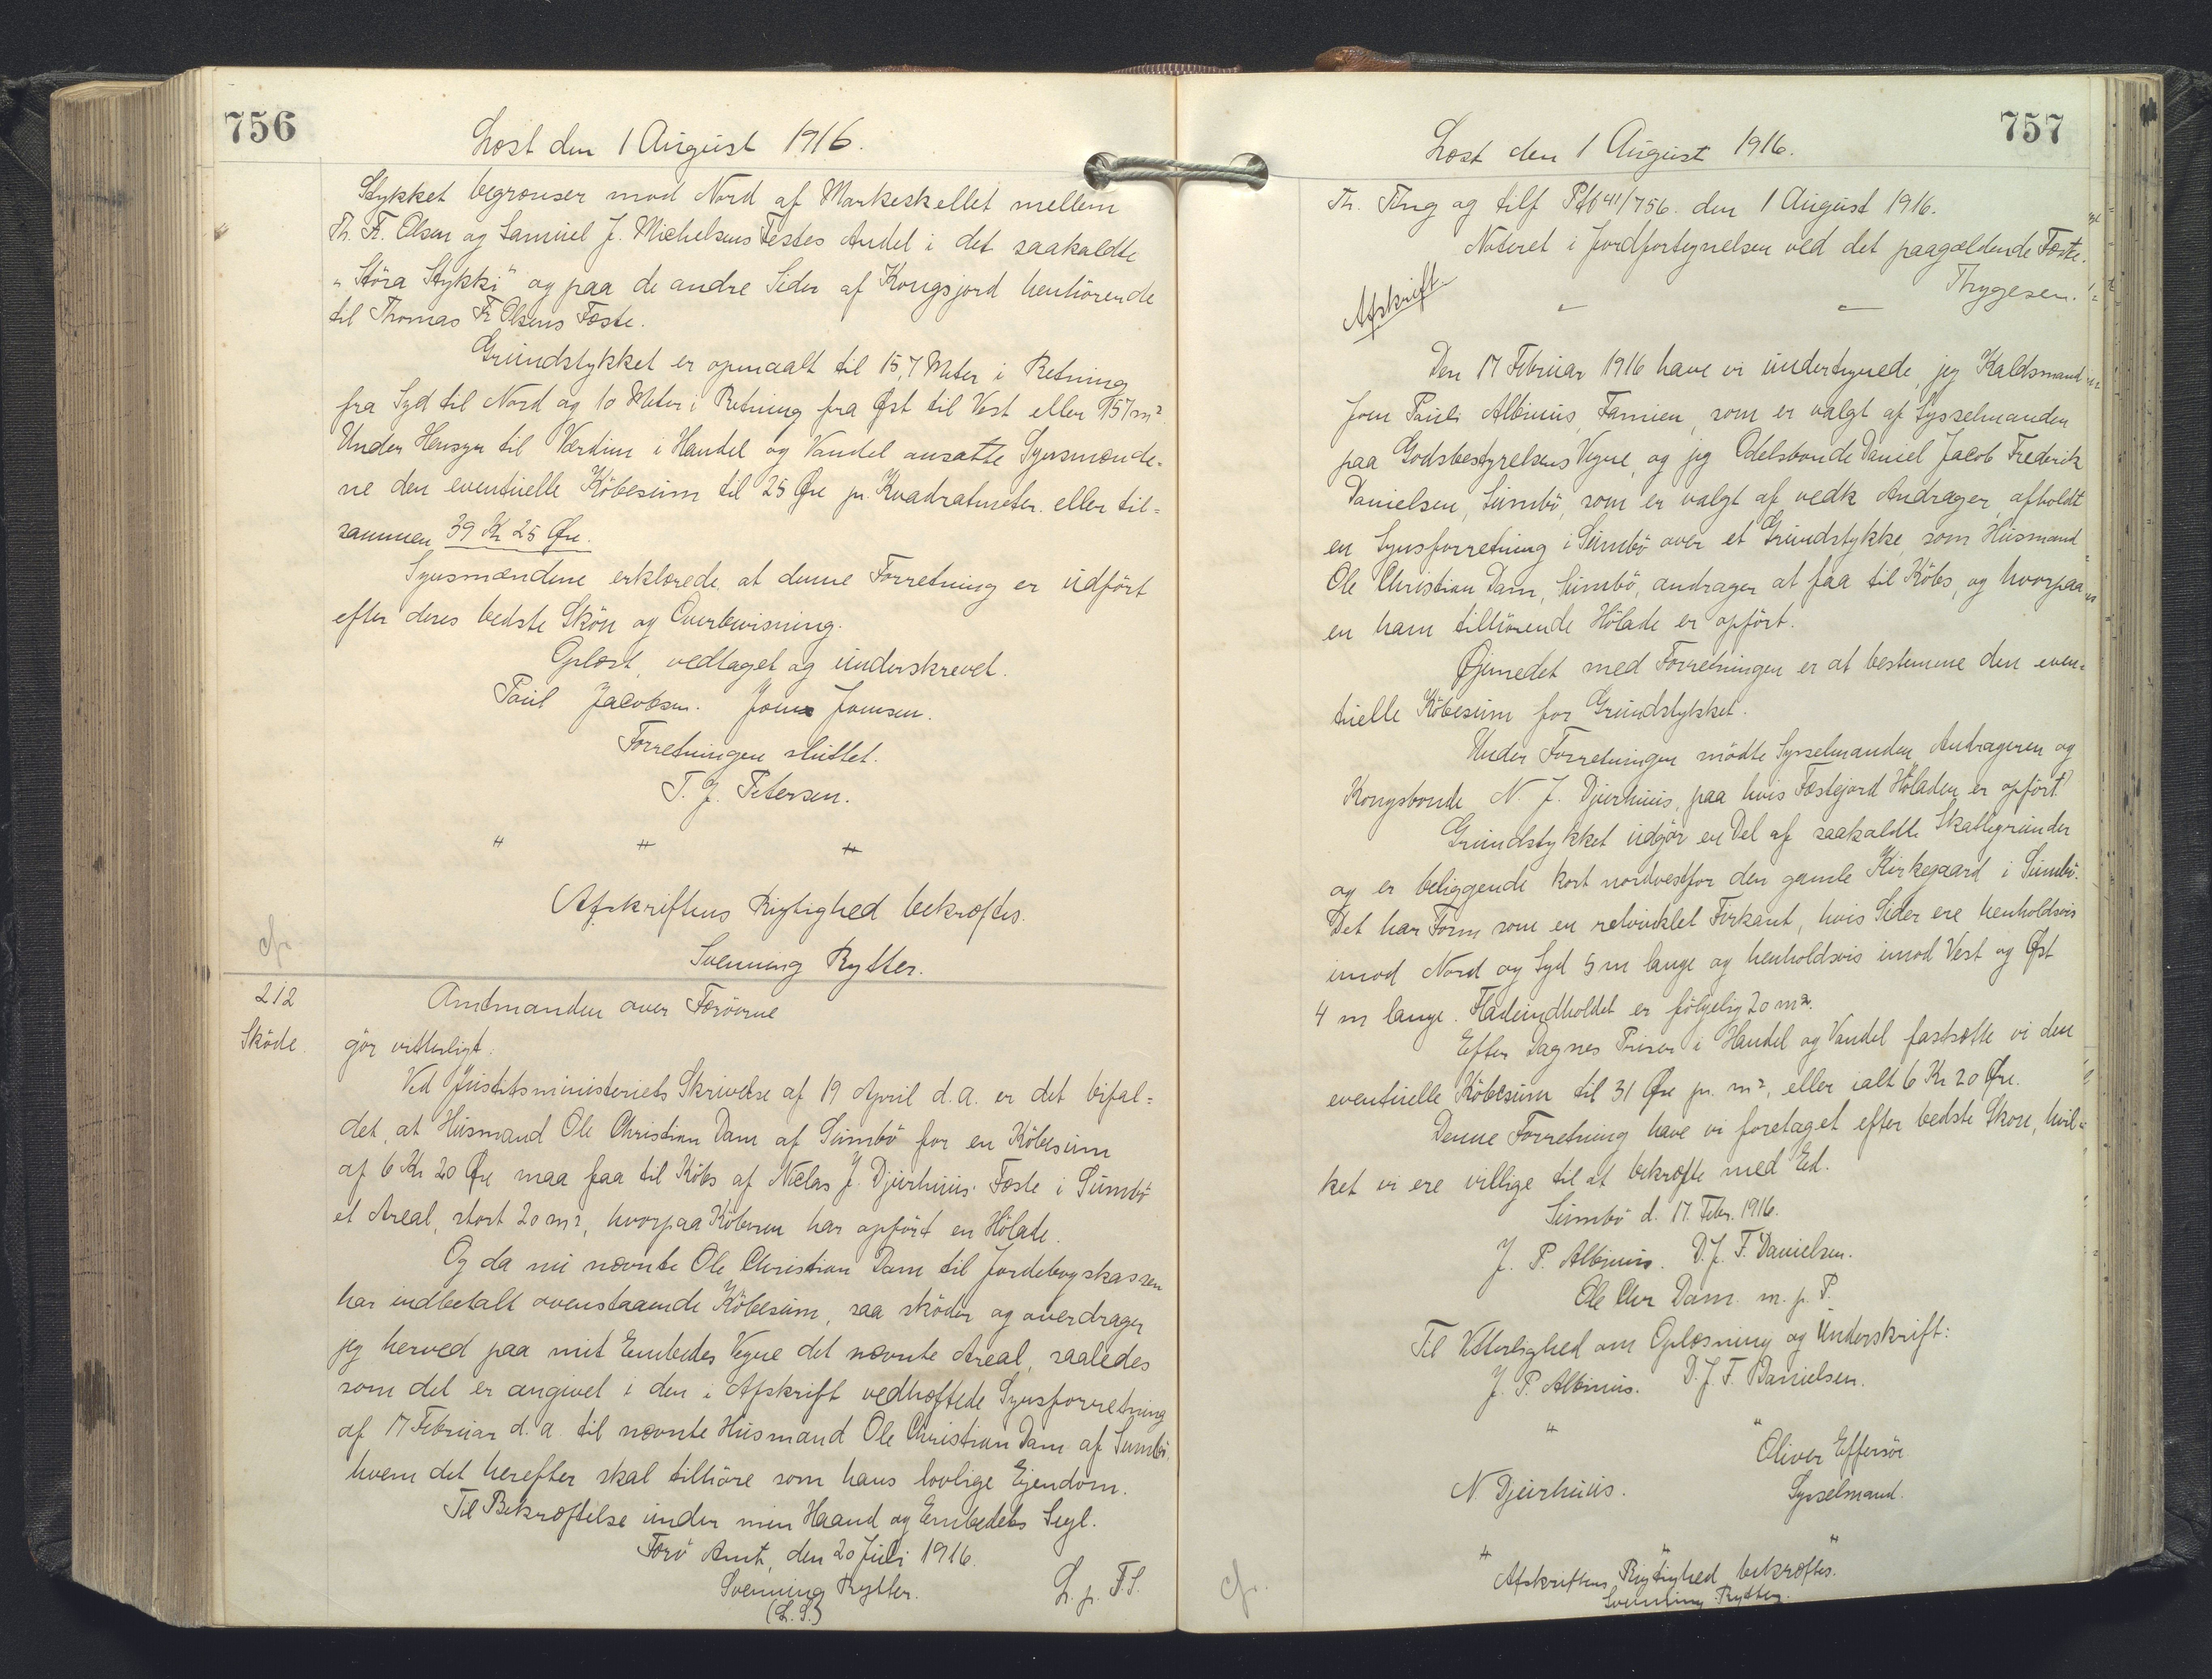 756
Læst den 1 August 1916.
Stykket begrænser mod Nord af Markeskellet mellem
Th. Fr. Olsen og Samuel J. Michelsens Festes Andel i det saakaldte
"Stóra Stykki" og paa de andre Sider af Kongsjord henhörende
til Thomas Fr Olsens Fæste.
Grundstykket er opmaalt til 15,7 Meter i Retning
fra Syd til Nord og 10 Meter i Retning fra Øst til Vest eller 157 m²
Under Hensyn til Værdien i Handel og Vandel ansatte Synsmænde-
ne den eventuelle Köbesum til 25 Øre pr. Kvadratmeter. eller til-
sammen 39 Kr 25 Øre.
Synsmændene erklærede, at denne Forretning er udfört
efter deres bedste Skön og Overbevisning.
Oplæst, vedtaget og underskrevet.
Poul Jacobsen. Joen Joensen.
Forretningen sluttet.
T. J. Petersen.
" " "
Afskriftens Rigtighed bekræftes.
Svenning Rytter.
cfr.
212
Sköde.
Amtmanden over Færöerne
gör vitterligt:
Ved Justitsministeriets Skrivelse af 19 April d.a. er det bifal-
det, at Husmand Ole Christian Dam af Sumbö for en Köbesum
af 6 Kr 20 Øre maa faa til Köbs af Niclas J. Djurhuus' Fæste i Sumbö
et Areal, stort 20 m², hvorpaa Köberen har opfört en Hölade.
Og da nu nævnte Ole Christian Dam til Jordebogskassen
har indbetalt ovenstaaende Köbesum, saa sköder og overdrager
jeg herved paa mit Embedes Vegne det nævnte Areal, saaledes
som det er angivet i den i Afskrift vedhæftede Synsforretning
af 17 Februar d.a. til nævnte Husmand Ole Christian Dam af Sumbö,
hvem det herefter skal tilhöre som hans lovlige Ejendom.
Til Bekræftelse under min Haand og Embedets Segl.
Færö Amt, den 20 Juli 1916.
Svenning Rytter.
(L.S.)
L. p. F.S.
757
Læst den 1 August 1916.
Th. Ting og tilf Ptb 41/756. den 1 August 1916.
Noteret i Jordfortegnelsen ved det paagældende Fæste.
Thygesen.
Afskrift.
Den 17 Februar 1916 have vi undertegnede, jeg Kaldsmand
Joen Pauli Albinus, Famien, som er valgt af Sysselmanden
paa Godsbestyrelsens Vegne, og jeg Odelsbonde Daniel Jacob Frederik
Danielsen, Sumbö, som er valgt af vedk Andrager, afholdt
en Synsforretning i Sumbö over et Grundstykke, som Husmand
Ole Christian Dam, Sumbö, andrager at faa til Köbs, og hvorpaa
en ham tilhörende Hölade er opfört.
Øjemedet med Forretningen er at bestemme den even-
tuelle Köbesum for Grundstykket.
Under Forretningen mödte Sysselmanden, Andrageren og
Kongsbonde N. J. Djurhuus, paa hvis Fæstejord Höladen er opfört.
Grundstykket udgör en Del af saakaldte Skattegrunder
og er beliggende kort nordvestfor den gamle Kirkegaard i Sumbö.
Det har Form som en retvinklet Firkant, hvis Sider ere henholdsvis
imod Nord og Syd 5 m lange og henholdsvis imod Vest og Øst
4 m lange. Fladeindholdet er fölgelig 20 m².
Efter Dagnes Priser i Handel og Vandel fastsætte vi den
eventuelle Köbesum til 31 Øre pr. m², eller ialt 6 Kr 20 Øre.
Denne Forretning have vi foretaget efter bedste Skön, hvil-
ket vi ere villige til at bekræfte med Ed.
Sumbö d. 17. Febr. 1916.
J. P. Albinus. D. J. F. Danielsen.
Ole Chr Dam. m. p. P.
Til Vitterlighed om Oplæsning og Underskrift:
J. P. Albinus. D. J. F. Danielsen.
" "
Oliver Effersöe
N. Djurhuus. Sysselmand.
" " "
Afskriftens Rigtighed bekræftes.
Svenning Rytter.
cfr.